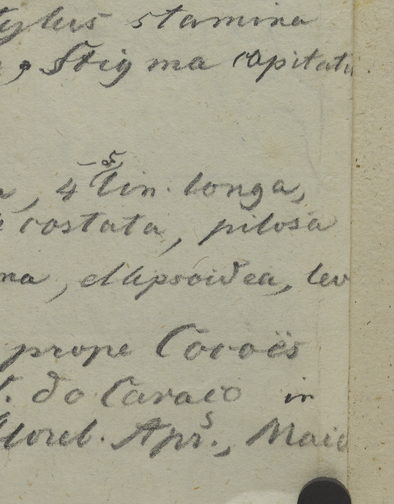 stylus stamina
, Stigma capitatu
, 4-5 lin. longa,
costata, pilosa
ma, ellipsoidea, lev
prope Coroës
. do Caraco in
Floret. Apr., Maio